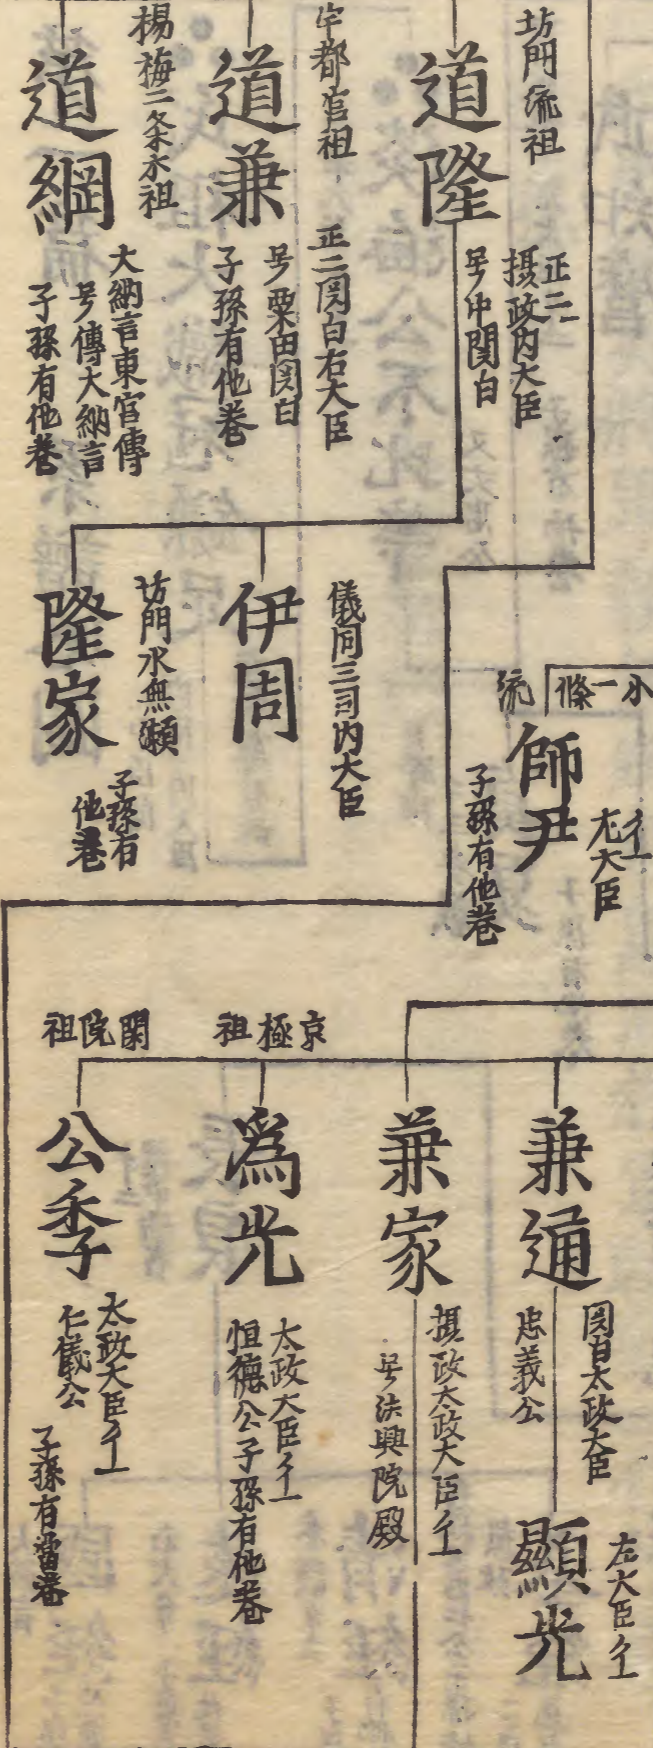 坊門流祖
道隆
正二
摂政内大臣
号中関白
宇都宮祖
道兼
正二関白右大臣
号粟田関白
子孫有他巻
楊梅二条水祖
道綱
大納言東宮傳
号傳大納言
子孫有他巻
儀同三司内大臣
伊周
坊門水無瀬
隆家
子孫有
他巻
小一條
流
師尹
左大臣
子孫有他巻
兼通
関白太政大臣
忠義公
顯光
左大臣从一
兼家
摂政太政大臣从一
号法興院殿
京極祖
為光
太政大臣从一
恒徳公子孫有他巻
閑院祖
公季
太政大臣从一
仁義公
子孫有當巻